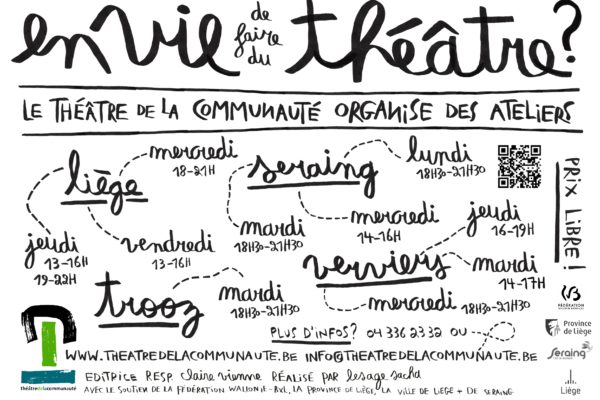 envie de faire du théâtre?
LE THÉÂTRE DE LA COMMUNAUTÉ ORGANISE DES ATELIERS
liège
mercredi
18-21H
jeudi
13-16H
19-22H
vendredi
13-16H
seraing
lundi
18H30-21H30
mardi
18H30-21H30
mercredi
14-16H
trooz
mardi
18H30-21H30
verviers
jeudi
16-19H
mardi
14-17H
mercredi
18H30-21H30
PRIX LIBRE!
PLUS D'INFOS? 04 336 23 32 OU
WWW.THEATREDELACOMMUNAUTE.BE INFO@THEATREDELACOMMUNAUTE.BE
EDITRICE RESP. claire vienne RÉALISÉ PAR lesage sacha
AVEC LE SOUTIEN DE LA FÉDÉRATION WALLONIE-BXL, LA PROVINCE DE LIÈGE, LA VILLE DE LIEGE + DE SERAING
théâtredelacommunauté
FÉDÉRATION
Province
de Liège
Seraing
Liège